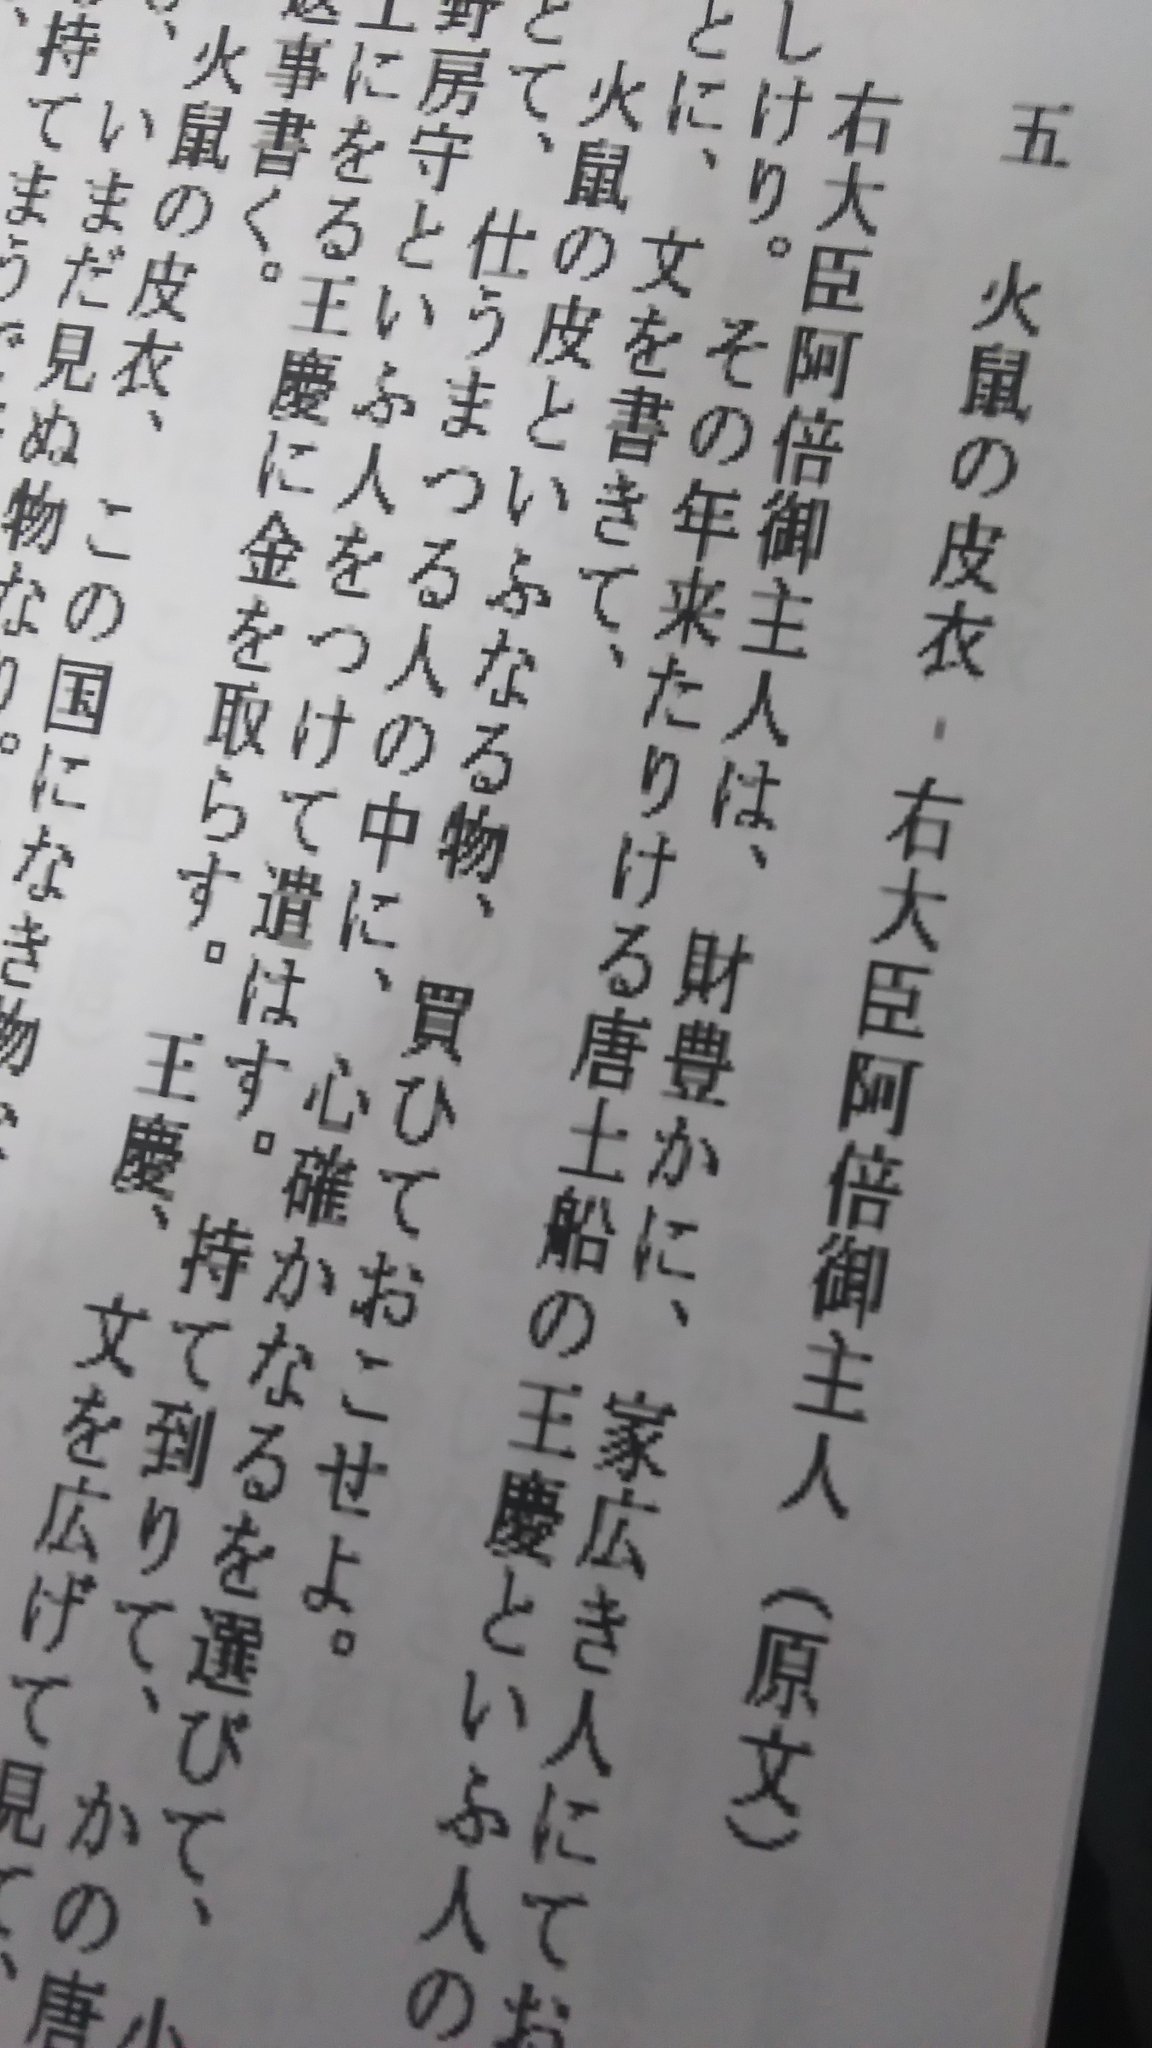 五 火鼠の皮衣-右大臣阿倍御主人（原文）
右大臣阿倍御主人は、財豊かに、家広き人にてお
しけり。その年来たりける唐土船の王慶といふ人の
とに、文を書きて、
火鼠の皮といふなる物、買ひておこせよ。
とて、仕うまつる人の中に、心確かなるを選びて、小
野房守といふ人をつけて遣はす。持て到りて、かの唐
土にをる王慶に金を取らす。王慶、文を広げて見て、
返事書く。
火鼠の皮衣、この国になき物
いまだ見ぬ物なり。
持てまうで